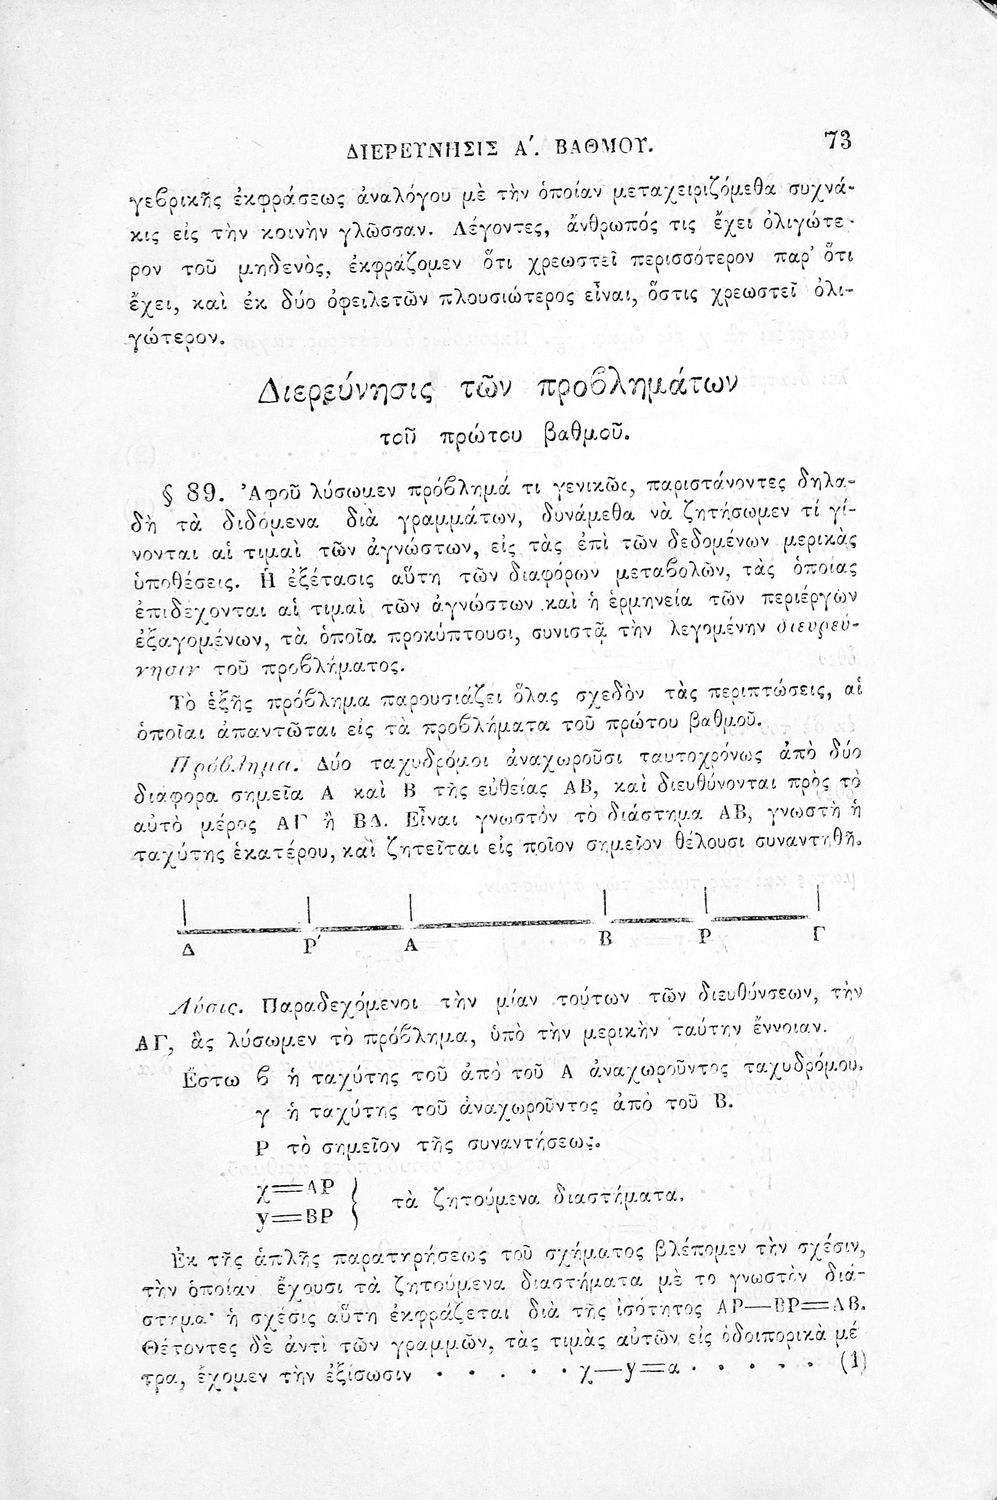 ΔΙΕΡΕΥΝΗΣΙΣ Α΄. ΒΑΘΜΟΥ. 73
γεϐρικῆς ἐκφράσεως ἀναλόγου μὲ τὴν ὁποίαν μεταχειριζόμεθα συχνά-
κις εἰς τὴν κοινὴν γλῶσσαν. Λέγοντες, ἄνθρωπός τις ἔχει ὀλιγώτε-
ρον τοῦ μηδενὸς, ἐκφράζομεν ὅτι χρεωστεῖ περισσότερον παρ’ ὅτι
ἔχει, καὶ ἐκ δύο ὀφειλετῶν πλουσιώτερος εἶναι, ὅστις χρεωστεῖ ὀλι-
γώτερον.
Διερεύνησις τῶν προϐλημάτων
τοῦ πρώτου βαθμοῦ.
§ 89. Ἀφοῦ λύσωμεν πρόϐλημά τι γενικῶς, παριστάνοντες δηλα-
δὴ τὰ διδόμενα διὰ γραμμάτων, δυνάμεθα νὰ ζητήσωμεν τί γί-
νονται αἱ τιμαὶ τῶν ἀγνώστων, εἰς τὰς ἐπὶ τῶν δεδομένων μερικὰς
ὑποθέσεις. Ἡ ἐξέτασις αὕτη τῶν διαφόρων μεταϐολῶν, τὰς ὁποίας
ἐπιδέχονται αἱ τιμαὶ τῶν ἀγνώστων καὶ ἡ ἑρμηνεία τῶν περιέργων
ἐξαγομένων, τὰ ὁποῖα προκύπτουσι, συνιστᾷ τὴν λεγομένην διευρεύ-
νησιν τοῦ προϐλήματος.
Τὸ ἑξῆς πρόϐλημα παρουσιάζει ὅλας σχεδὸν τὰς περιπτώσεις, αἱ
ὁποῖαι ἀπαντῶται εἰς τὰ προϐλήματα τοῦ πρώτου βαθμοῦ.
Πρόϐλημα. Δύο ταχυδρόμοι ἀναχωροῦσι ταυτοχρόνως ἀπὸ δύο
διάφορα σημεῖα Α καὶ Β τῆς εὐθείας ΑΒ, καὶ διευθύνονται πρὸς τὸ
αὐτὸ μέρος ΑΓ ἢ ΒΔ. Εἶναι γνωστὸν τὸ διάστημα ΑΒ, γνωστὴ ἡ
ταχύτης ἑκατέρου, καὶ ζητεῖται εἰς ποῖον σημεῖον θέλουσι συναντηθῆ.
Δ Ρ΄ Α Β Ρ Γ
Λύσις. Παραδεχόμενοι τὴν μίαν τούτων τῶν διευθύνσεων, τὴν
ΑΓ, ἂς λύσωμεν τὸ πρόϐλημα, ὑπὸ τὴν μερικὴν ταύτην ἔννοιαν.
Ἔστω ϐ ἡ ταχύτης τοῦ ἀπὸ τοῦ Α ἀναχωροῦντος ταχυδρόμου.
γ ἡ ταχύτης τοῦ ἀναχωροῦντος ἀπὸ τοῦ Β.
Ρ τὸ σημεῖον τῆς συναντήσεως.
χ=ΑΡ } τὰ ζητούμενα διαστήματα.
y=ΒΡ
Ἐκ τῆς ἁπλῆς παρατηρήσεως τοῦ σχήματος βλέπομεν τὴν σχέσιν,
τὴν ὁποίαν ἔχουσι τὰ ζητούμενα διαστήματα μὲ το γνωστὸν διά-
στημα· ἡ σχέσις αὕτη ἐκφράζεται διὰ τῆς ἰσότητος ΑΡ—ΒΡ=ΑΒ.
Θέτοντες δὲ ἀντὶ τῶν γραμμῶν, τὰς τιμὰς αὐτῶν εἰς ὁδοιπορικὰ μέ
τρα, ἔχομεν τὴν ἐξίσωσιν · · · · · χ—y=α · · · · · (1)